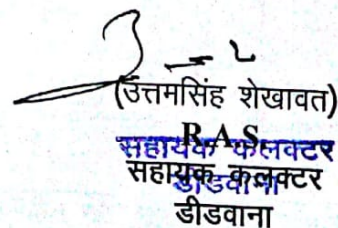 (उत्तमसिंह शेखावत)
R.A.S.
सहायक कलक्टर
सहायक कलक्टर
डीडवाना
डीडवाना